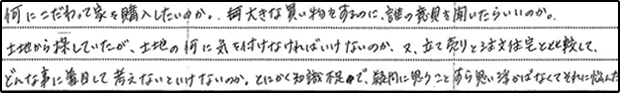 何にこだわって家を購入したいのか。一番大きな買い物をするのに、誰の意見を聞いたらいいのか。
土地から探していたが、土地の何に気を付けなければいけないのか、又、立て売りと注文住宅とを比較して、
どんな事に着目して考えないといけないのか。とにかく知識不足で、疑問に思うことすら思い浮かばなくてそれに悩んだ